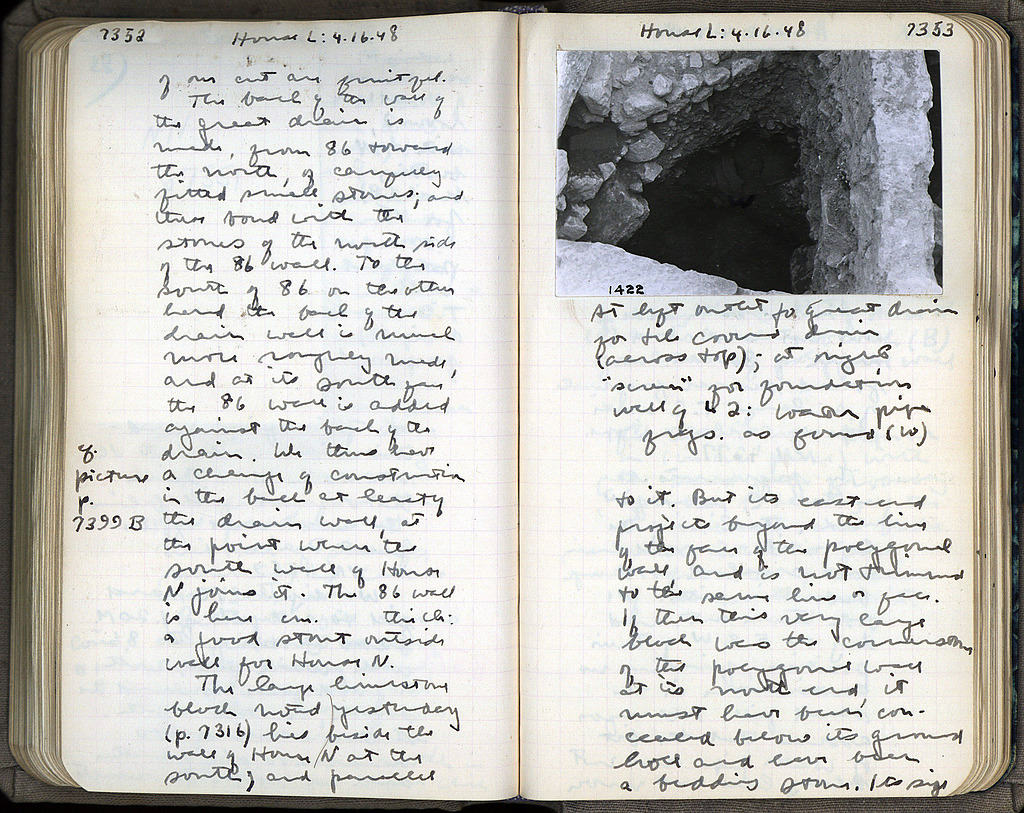 7352
House L: 4.16.48
of our cut are
The back of the wall of
the great drain is
made, from 86 toward
the north, of carefully
fitted small stones, and
these bond with the
stones of the north side
of the 86 wall. To the
south of 86 on the other
hand the back of the
drain wall is much
more roughly made,
and at its south face
the 86 wall is added
against the back of the
drain. We thus have
a change of construction
in the back at least of
the drain wall, at
the point where the
south wall of House
N joins it. The 86 wall
is here cm. thick:
a good stout outside
wall for House N.
The large limestone
block noted yesterday
(p. 7316) lies beside the
wall of House N at the
south, and parallel
cf.
picture
p.
7399 B
House L: 4.16.48
7353
1422
At left outlet to great drain
for tile covered drain
(across top); at right
"screen" for foundation
wall of 42: water pipe
frgs. as found (W)
to it. But its east end
projects beyond the line
of the face of the polygonal
wall and is not trimmed
to the same line or face.
If then this very large
block was the cornerstone
of the polygonal wall
at its north end, it
must have been con-
cealed below its ground
level and have been
a bedding stone. Its size